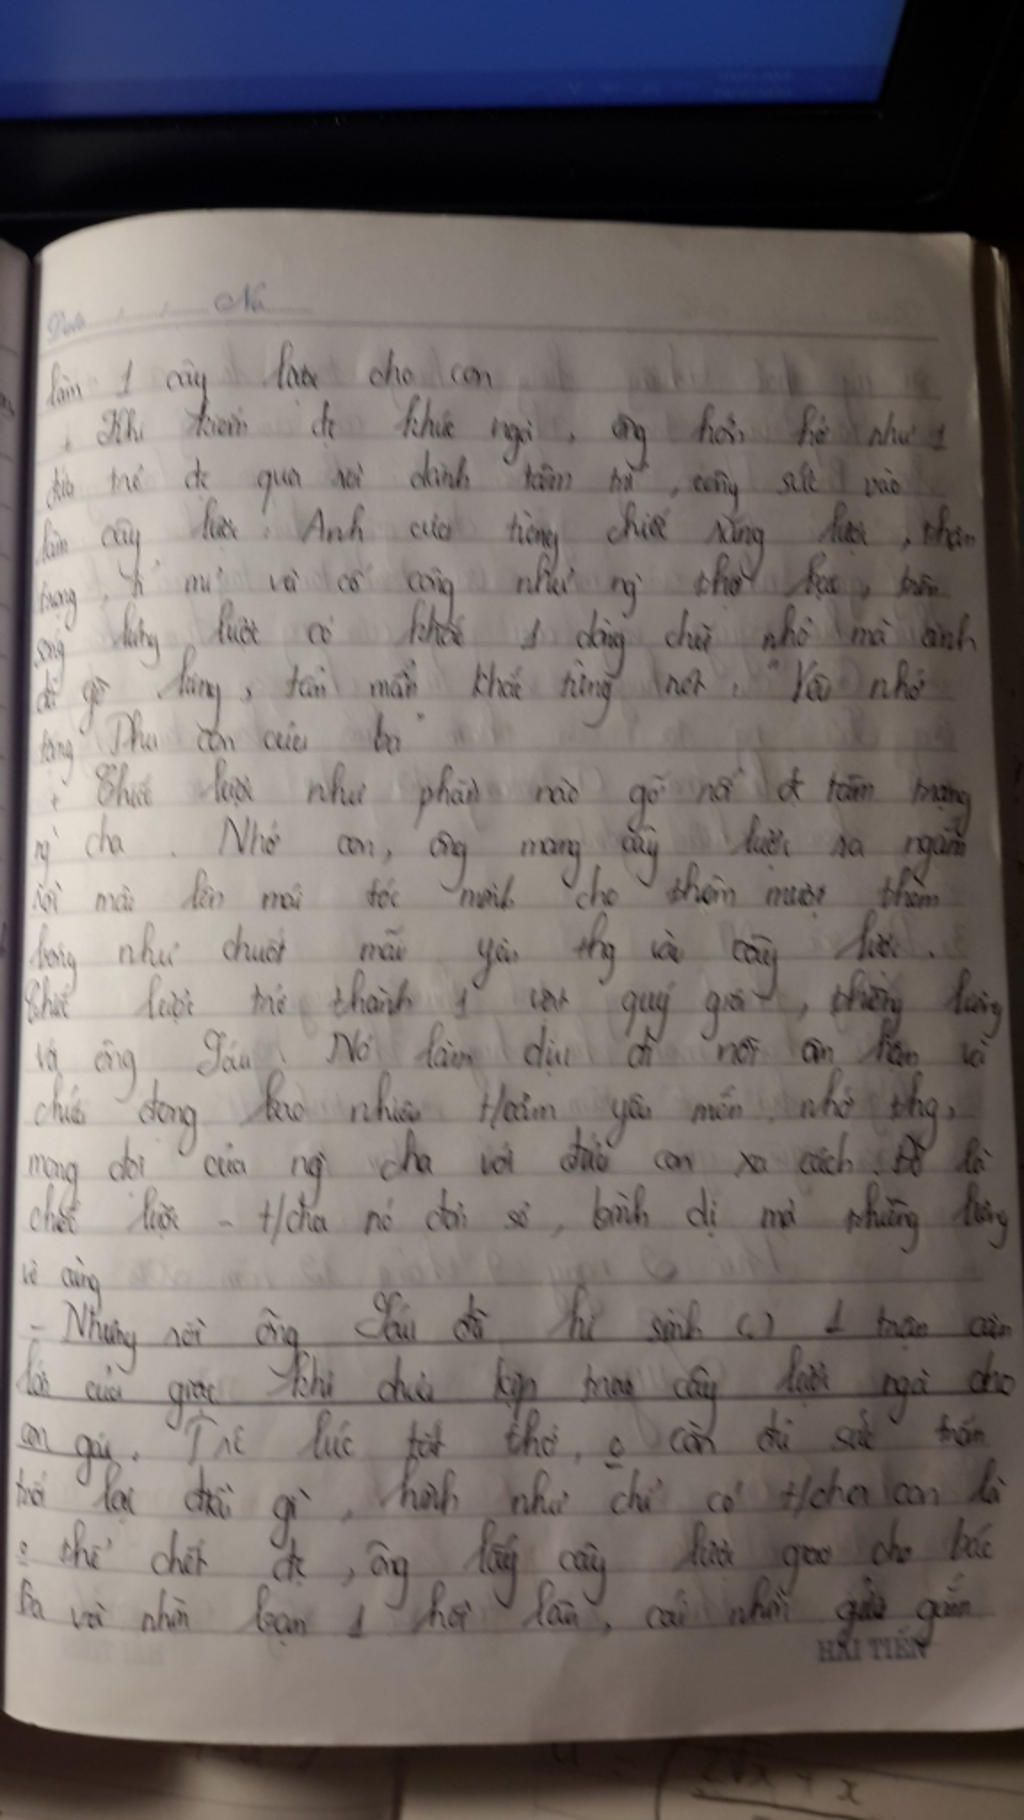 Date / / No
làm 1 cây lược cho con
+ Khi kiếm đc khúc ngà, ông hớn hở như 1
đứa trẻ đc quà rồi dành tâm trí, công sức vào
làm cây lược. Anh cưa từng chiếc răng lược, thận
trọng, tỉ mỉ và cố công như ng thợ bạc, trên
sống lưng lược có khắc 1 dòng chữ nhỏ mà anh
đã gò lưng, tẩn mẩn khắc từng nét. "Yêu nhớ
tặng Thu con của ba"
+ Chiếc lược như phần nào gỡ rối đc tâm trạng
ng cha. Nhớ con, ông mang cây lược ra ngắm
rồi mài lên mái tóc mình cho thêm mượt thêm
bóng như chuốt mãi yêu thg vào cây lược.
Chiếc lược trở thành 1 vật quý giá, thiêng liêng
vs ông Sáu. Nó làm dịu đi nỗi ân hận và
chứa đựng bao nhiêu t/cảm yêu mến, nhớ thg,
mong đợi của ng cha với đứa con xa cách. Đó là
chiếc lược - t/cha nó đơn sơ, bình dị mà thiêng liêng
vô cùng
- Nhưng rồi ông Sáu đã hi sinh () 1 trận càn
lớn của giặc khi chưa kịp trao cây lược ngà cho
con gái. Trc lúc tắt thở, o còn đủ sức trăn
trối lại điều gì, hình như chỉ có t/cha con là
o thể chết đc, ông lấy cây lược giao cho bác
Ba và nhìn bạn 1 hồi lâu, cái nhìn gửi gắm
HẢI TIẾN